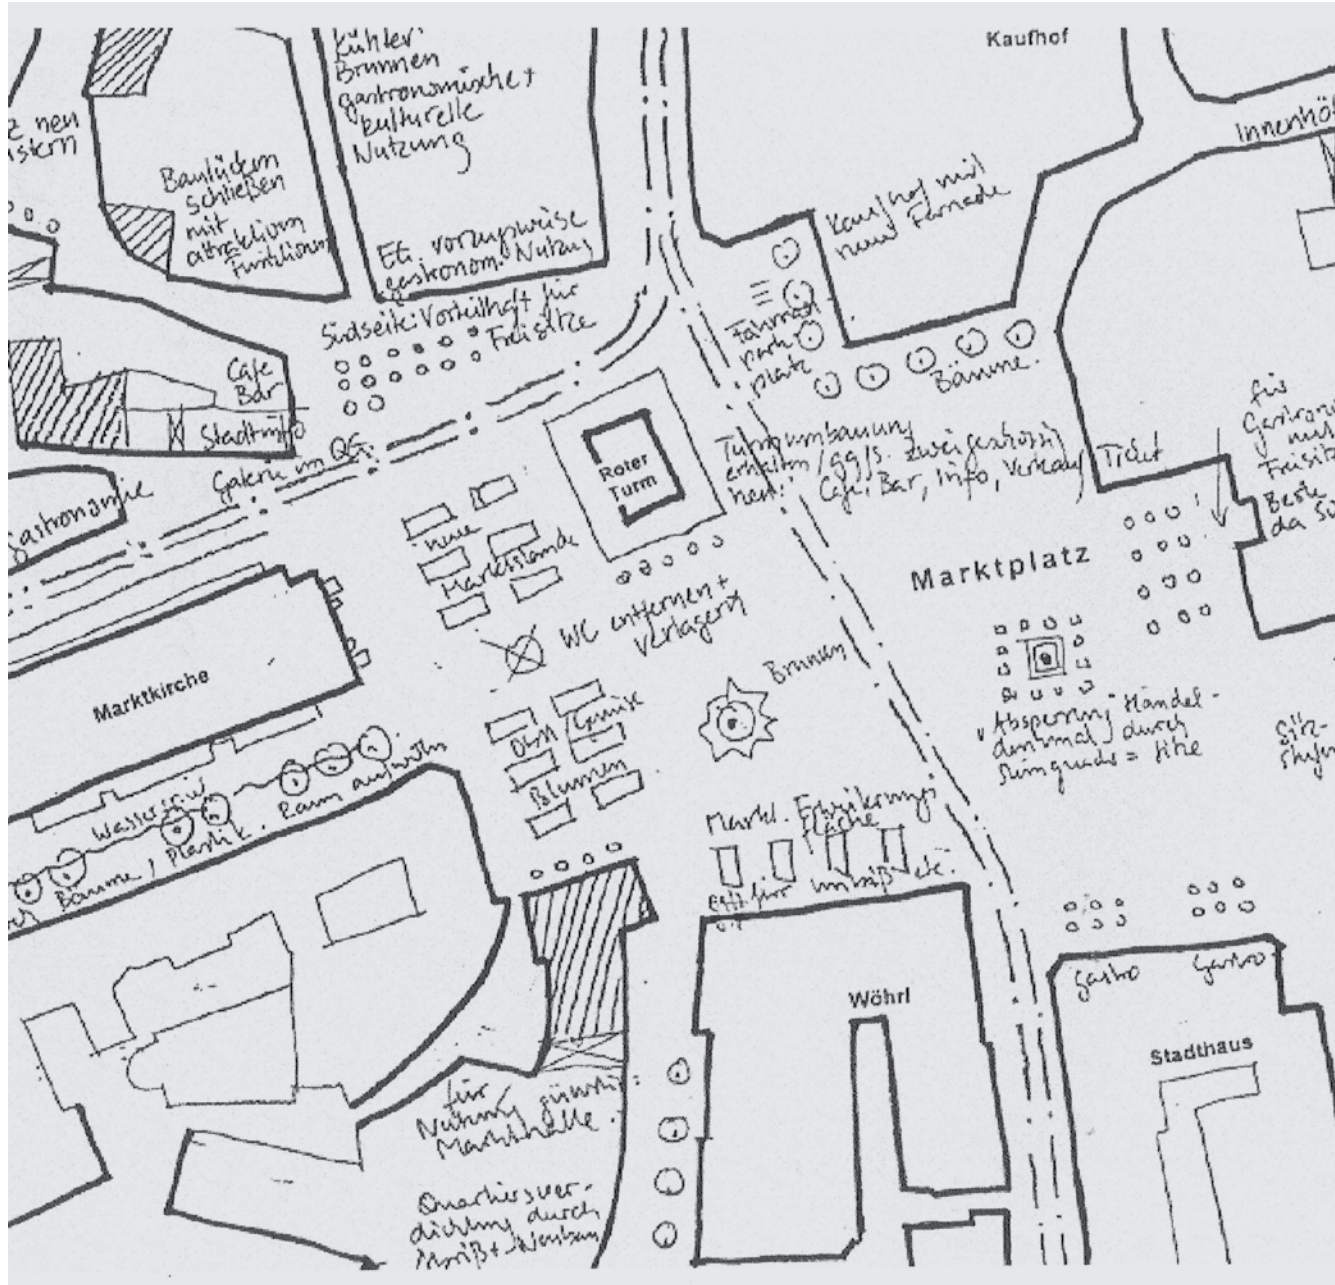 Kühler
Brunnen
gastronomische +
kulturelle
Nutzung
Kaufhof
Innenhö
z neu
istern
Baulücken
schließen
mit
attraktiven
Funktionen
EG vorzugsweise
gastronom. Nutzung
Kaufhof mit
neuer Fassade
Südseite: Vorteilhaft für
Freisitze
Fahrrad
park
platz
Bäume.
Cafe
Bar
Stadtinfo
Galerie im OG.
gastronomie
Roter
Turm
Turmumbauung
erhalten / ggfs. zweigeschossig
neu: Cafe, Bar, Info, Verkauf, Ticket
für
Gastronomie
mit
Freisitz
Beste
da Sü
neue
Marktstände
Marktplatz
WC entfernen +
verlagern
Brunnen
Marktkirche
Absperrung Händel-
denkmal durch
Steinquader = Sitze
Sitz-
stufen
Obst
Gemüse
Blumen
Wasserspiel
Bäume, Plastik. Raum aufwerten
Markt. Erweiterungs
fläche
evtl. für Imbiß etc.
Gastro
Gastro
Wöhrl
Stadthaus
für
Nutzung günstig:
Markthalle.
Quartiersver-
dichtung durch
Abriß + Neubau